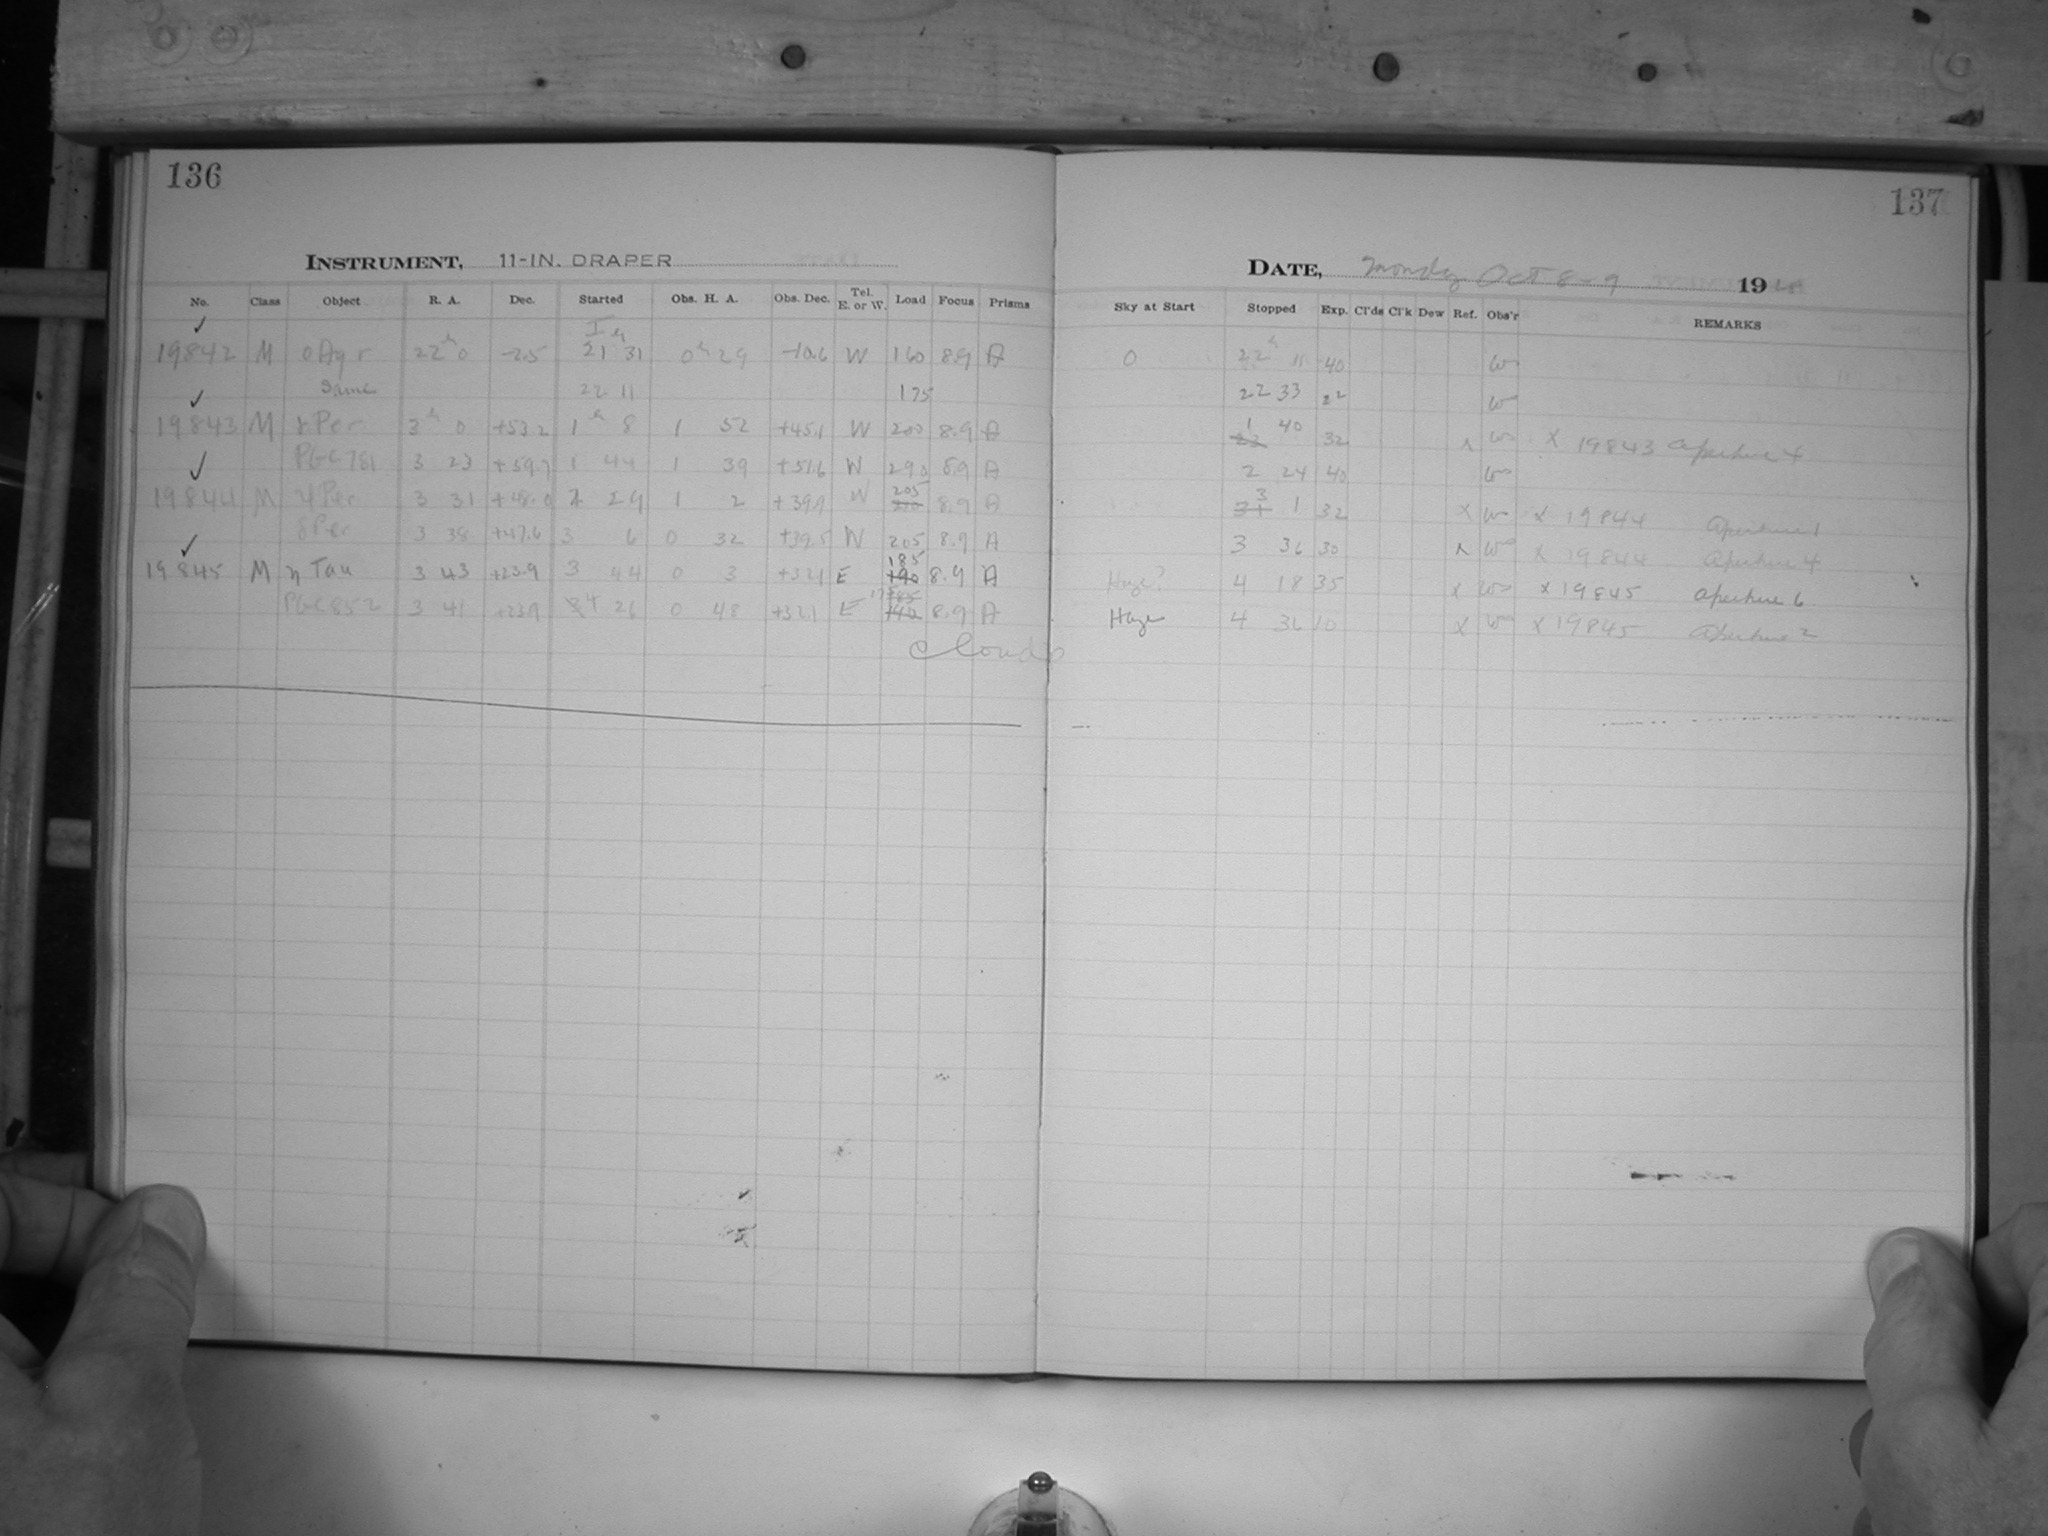 136
INSTRUMENT, 11-IN. DRAPER
No. Class Object R. A. Dec. Started Obs. H. A. Obs. Dec. Tel. E. or W. Load Focus Prisms
I
19842 M o Aqr 22h 0 -2.5 21h 31 0h 29 -10.6 W 160 8.9 A
Same 22 11 175
19843 M γ Per 3h 0 +53.2 1h 8 1 52 +45.1 W 200 8.9 A
PGC 781 3 23 +59.7 1 44 1 39 +51.6 W 290 8.9 A
19844 M ψ Per 3 31 +48.0 2 29 1 2 +39.9 W 205 8.9 A
δ Per 3 38 +47.6 3 6 0 32 +39.5 W 205 8.9 A
19845 M η Tau 3 43 +23.9 3 44 0 3 +32.1 E 185 190 8.9 A
PGC 852 3 41 +23.9 4 26 0 48 +32.1 E 8.9 A
Clouds
137
DATE, Monday Oct 8-9 19
Sky at Start Stopped Exp. Cl'ds Cl'k Dew Ref. Obs'r REMARKS
0 22h 11 40 W
22 33 22 W
1 40 32 x W x 19843 aperture 4
2 24 40 W
3 1 32 x W x 19844 aperture 1
3 36 30 x W x 19844 aperture 4
Haze? 4 18 35 x W x 19845 aperture 6
Haze 4 36 10 x W x 19845 aperture 2